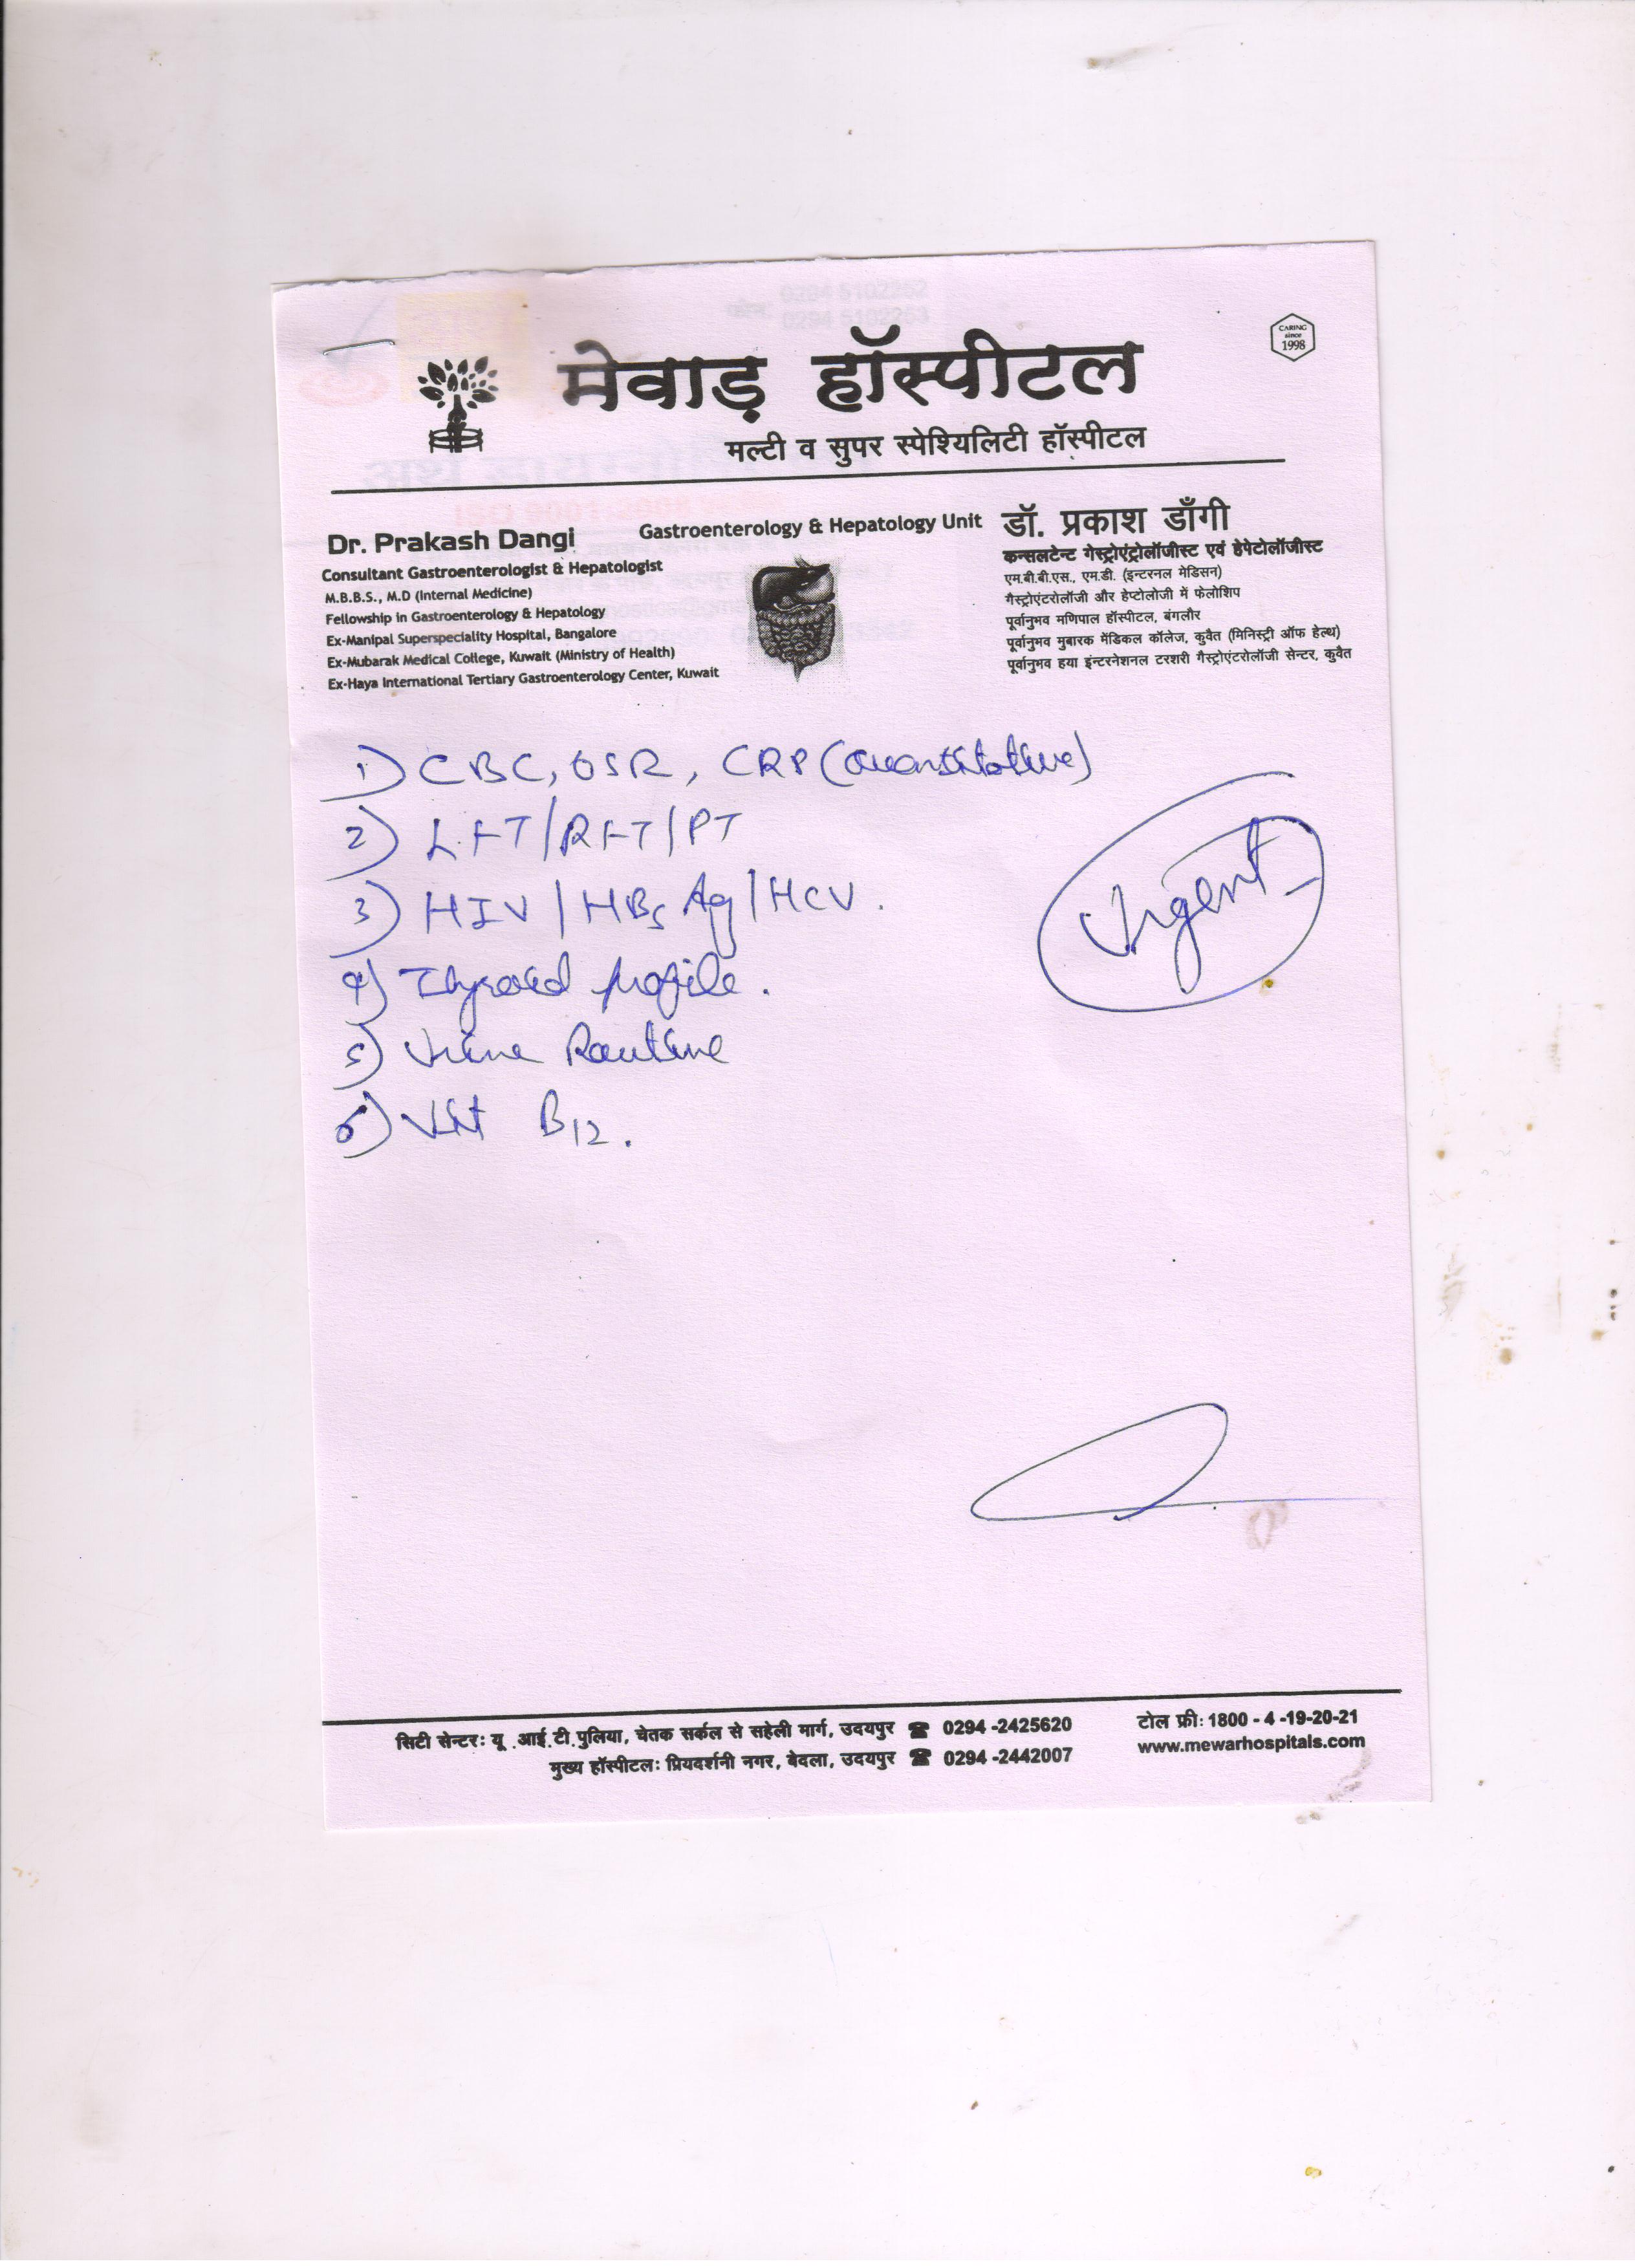 CARING
since
1998
मेवाड़ हॉस्पीटल
मल्टी व सुपर स्पेश्यिलिटी हॉस्पीटल
Dr. Prakash Dangi
Consultant Gastroenterologist & Hepatologist
M.B.B.S., M.D (Internal Medicine)
Fellowship in Gastroenterology & Hepatology
Ex-Manipal Superspeciality Hospital, Bangalore
Ex-Mubarak Medical College, Kuwait (Ministry of Health)
Ex-Haya International Tertiary Gastroenterology Center, Kuwait
Gastroenterology & Hepatology Unit
डॉ. प्रकाश डाँगी
कन्सलटेन्ट गेस्ट्रोएंट्रोलॉजीस्ट एवं हेपेटोलॉजीस्ट
एम.बी.बी.एस., एम.डी. (इन्टरनल मेडिसन)
गैस्ट्रोएंटरोलॉजी और हेप्टोलोजी में फेलोशिप
पूर्वानुभव मणिपाल हॉस्पीटल, बंगलौर
पूर्वानुभव मुबारक मेडिकल कॉलेज, कुवैत (मिनिस्ट्री ऑफ हेल्थ)
पूर्वानुभव हया इंन्टरनेशनल टरशरी गैस्ट्रोएंटरोलॉजी सेन्टर, कुवैत
1) CBC, ESR, CRP (Quantitative)
2) LFT/RFT/PT
3) HIV/HBsAg/HCV.
Urgent
4) Thyroid profile.
5) Urine Routine
6) Vit B12.
सिटी सेन्टर: यू .आई.टी.पुलिया, चेतक सर्कल से सहेली मार्ग, उदयपुर ☎ 0294 -2425620
मुख्य हॉस्पीटल: प्रियदर्शनी नगर, बेदला, उदयपुर ☎ 0294 -2442007
टोल फ्री: 1800 - 4 -19-20-21
www.mewarhospitals.com